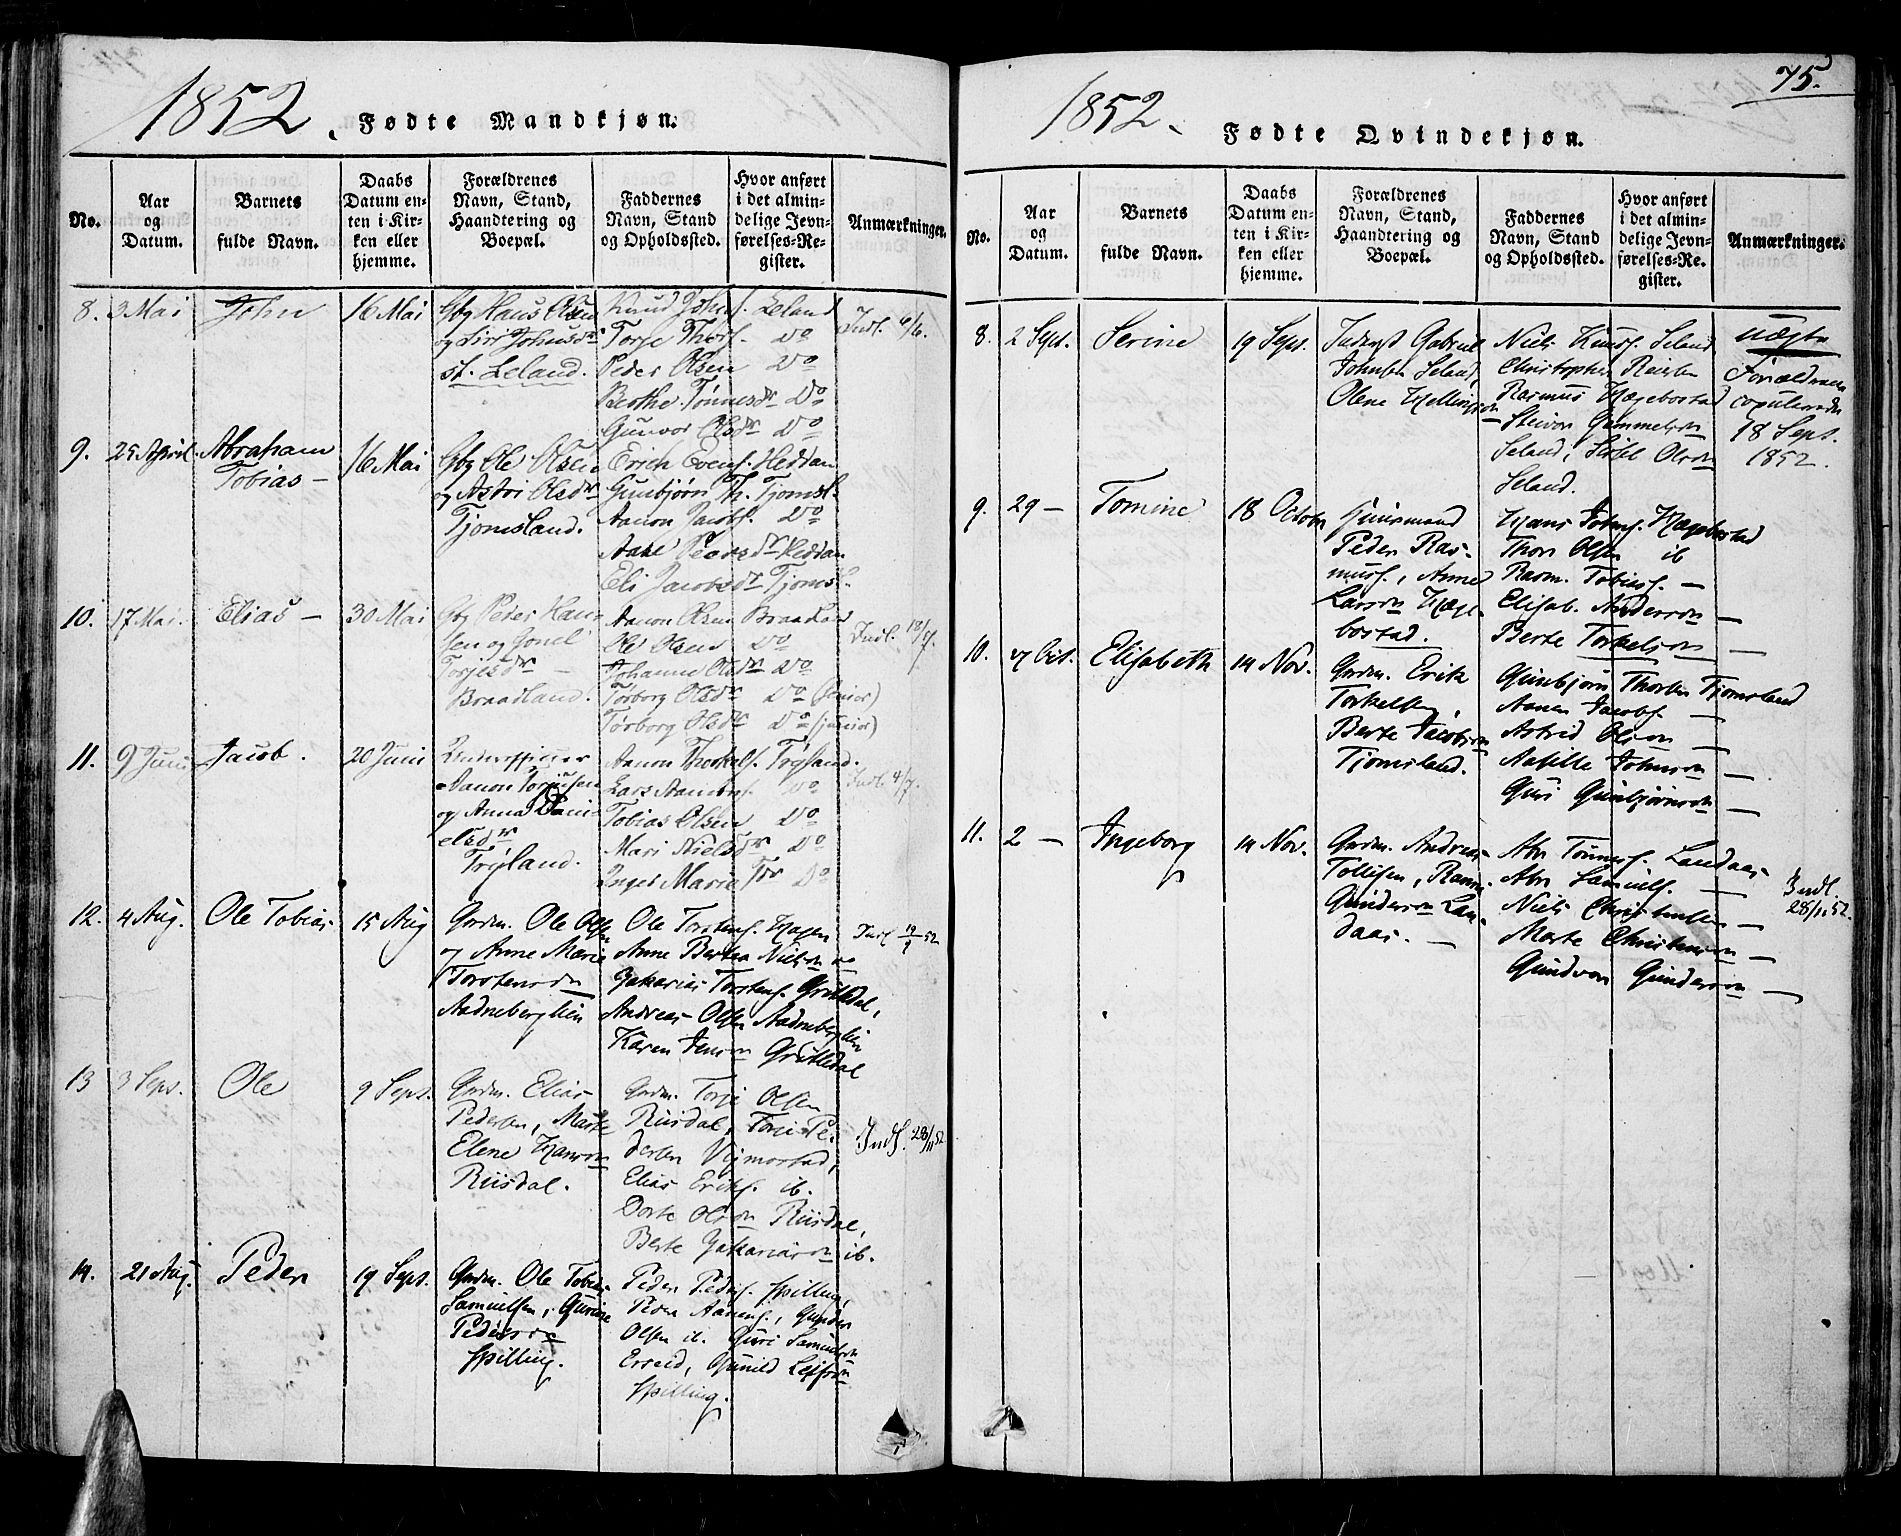 1852. Fødte Mandkjøn.
No.
Aar
og
Datum.
Barnets
fulde Navn.
Daabs
Datum en-
ten i Kir-
ken eller
hjemme.
Forældrenes
Navn, Stand,
Haandtering og
Boepæl.
Faddernes
Navn, Stand
og Opholdssted.
Hvor anført
i det almin-
delige Jevn-
førelses-Re-
gister.
Anmærkninger.
8. 3 Mai
John
16 Mai
Gbr Hans Olsen
og Siri Johnsdr
st. Leland.
Knud Johns. Leland
Torje Thors. Do
Peder Olsen Do
Berthe Tønnesdr Do
Gunvor Olsdr Do
Indl. 6/6.
9. 25 April
Abraham
Tobias –
16 Mai
Gbr Ole Olsen
og Astri Olsdr
Tjomsland.
Erich Evens. Heddan
Gunbjørn Th. Tjomsl.
Aanon Jacobs. Do
Aase Pedersdr Heddan
Eli Jacobsdr Tjomsl.
10. 17 Mai.
Elias –
30 Mai
Gbr Peder Han-
sen og Gonel
Torjesdr –
Braadland.
Aanon Olsen Braadland
Ole Olsen Do
Johanne Olsdr Do
Tørborg Olsdr Do (senior)
Tørborg Olsdr Do (junior)
Indl. 18/7.
11. 9 Juni
Jacob.
20 Juni
Underofficer
Aanon Torjusen
og Anna Dani-
elsdr
Trÿland.
Aanon Thorkels. Trÿland.
Lars Aanons. Do
Tobias Olsen Do
Mari Nielsdr Do
Inger Marie Tor Do
Indl. 4/7.
12. 4 Aug.
Ole Tobias
15 Aug
Grdm. Ole Olsen
og Anne Marie
Torstensdn
Aadneberglien
Ole Torstens. Hagen
Anne Bertea Nielsdn do
Zakarias Torstens. Gritledal,
Andreas Olsen Aadneberglien
Karen Jensdn Gritledal
Indl 19/9 52
13 3 Sept.
Ole
9 Sept.
Grdm. Elias
Pedersen, Marte
Elene Hansdn
Riisdal.
Grdm. Torje Olsen
Riisdal, Torje Pe-
dersen Vigmostad,
Elias Eriks. ib.
Dorte Olsdn Riisdal,
Berte Zakariasdn ib.
Indl. 28/11 52
14. 21 Aug.
Peder
19 Sept.
Grdm. Ole Tobias
Samuelsen, Gurine
Pedersdn
Spilling.
Peder Peders. Spilling,
Peder Aanens., Gunder
Olsen ib. Guri Samuelsdn
Erseid, Gunild Leifsdn
Spilling.
75.
1852. Fødte Qvindekjøn.
No.
Aar
og
Datum.
Barnets
fulde Navn.
Daabs
Datum en-
ten i Kir-
ken eller
hjemme.
Forældrenes
Navn, Stand,
Haandtering og
Boepæl.
Faddernes
Navn, Stand
og Opholdssted.
Hvor anført
i det almin-
delige Jevn-
førelses-Re-
gister.
Anmærkninger.
8. 2 Sept.
Serine
19 Sept.
Inderst Gabriel
Johnsen Seland,
Olene Kjellings
Niels Knuds. Seland
Christopher Reiersen
Rasmus Hægebostad
Steivor Gammelsdn
Seland, Sissel Olsdn
Seland.
uægte
Forældrene
copulerede
18 Sept.
1852.
9. 29 –
Tomine
18 Octobr
Huusmand
Peder Ras-
muss., Anne
Larsdn Hæge-
bostad.
Hans Johns. Hægebostad
Thore Olsen ib
Rasm. Tobias. –
Elisab. Andersdn –
Berte Torkelsdn –
10. 17 Oct.
Elisabeth
14 Nov.
Grdm. Erik
Torkelsen,
Berte Jacobsdn
Tjomsland.
Gunbjørn Thorsen Tjomsland
Aanen Jacobs. –
Astrid Olsdn –
Aasille Johnsdn –
Guri Gunbjørnsdn –
11. 2 –
Ingeborg
14 Nov.
Grdm. Andreas
Tollefsen, Ramn.
Gundersdn Lan-
daas. –
Abr Tønness. Landaas
Abr Samuels. –
Niels Christensen –
Marte Christensdn –
Gundvor Gundersdn –
Indl.
28/11 52.